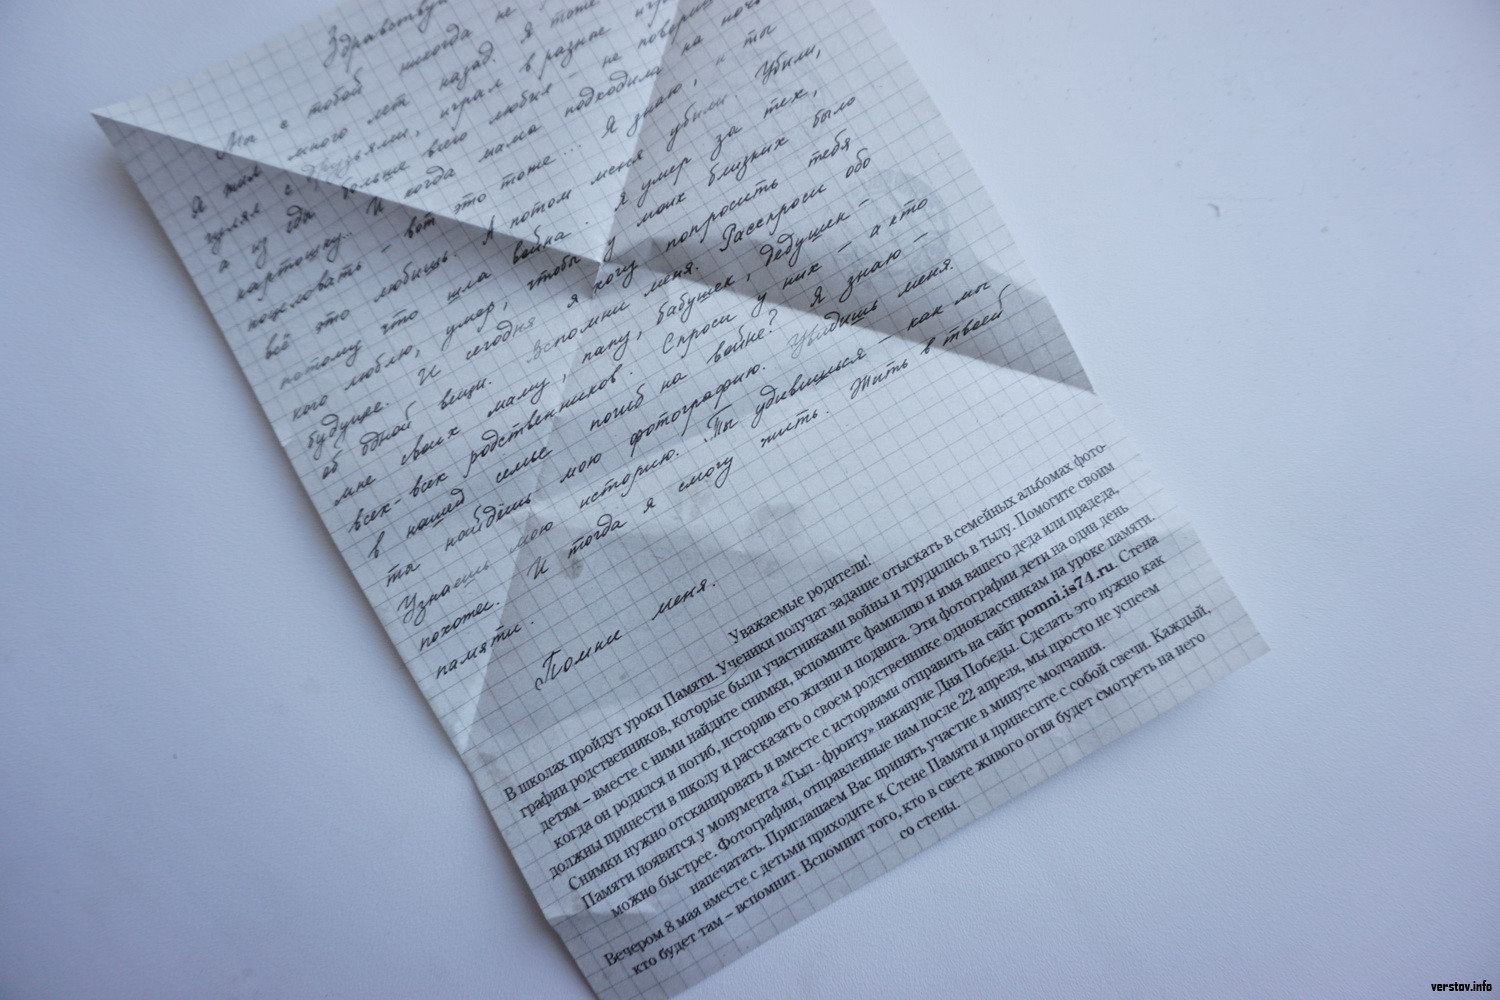 Здравствуй
Мы с тобой никогда не
Я жил много лет назад. Я тоже
гулял с друзьями, играл в разные игры
а из еды больше всего любил – не поверишь
картошку... И когда мама подходила на ночь
поцеловать – вот это тоже... Я знаю, и ты
всё это любишь. А потом меня убили. Убили,
потому что шла война. Я умер за тех,
кого люблю, умер, чтобы у моих близких было
будущее. И сегодня я хочу попросить тебя
об одной вещи. Вспомни меня. Расспроси обо
мне своих маму, папу, бабушек, дедушек –
всех-всех родственников. Спроси у них – а кто
в нашей семье погиб на войне? Я знаю –
ты найдёшь мою фотографию. Увидишь меня.
Узнаешь мою историю. Ты удивишься – как мы
похожи. И тогда я смогу жить. Жить в твоей
памяти.
Помни меня.
Уважаемые родители!
В школах пройдут уроки Памяти. Ученики получат задание отыскать в семейных альбомах фото-
графии родственников, которые были участниками войны и трудились в тылу. Помогите своим
детям – вместе с ними найдите снимки, вспомните фамилию и имя вашего деда или прадеда,
когда он родился и погиб, историю его жизни и подвига. Эти фотографии дети на один день
должны принести в школу и рассказать о своем родственнике одноклассникам на уроке памяти.
Снимки нужно отсканировать и вместе с историями отправить на сайт pomni.is74.ru. Стена
Памяти появится у монумента «Тыл - фронту» накануне Дня Победы. Сделать это нужно как
можно быстрее. Фотографии, отправленные нам после 22 апреля, мы просто не успеем
напечатать. Приглашаем Вас принять участие в минуте молчания.
Вечером 8 мая вместе с детьми приходите к Стене Памяти и принесите с собой свечи. Каждый,
кто будет там – вспомнит. Вспомнит того, кто в свете живого огня будет смотреть на него
со стены.
verstov.info